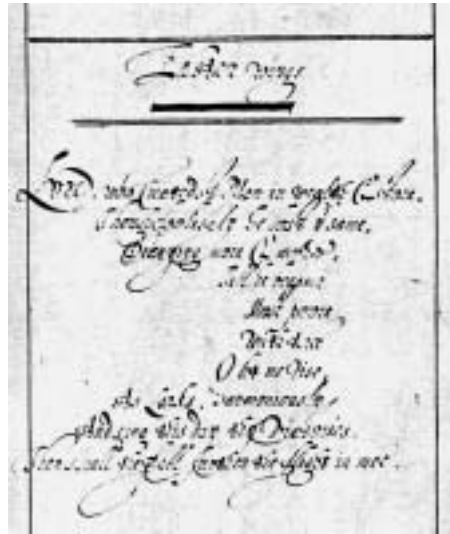 Easter wings
Lord. who Createdst Man in wealth & store,
Though foolishly he lost the same,
Decaying more & more,
Till he became
Most poore,
With thee
O let me rise,
As Larks, harmoniously,
And sing this day thy Victories.
Then shall the fall further the flight in mee.